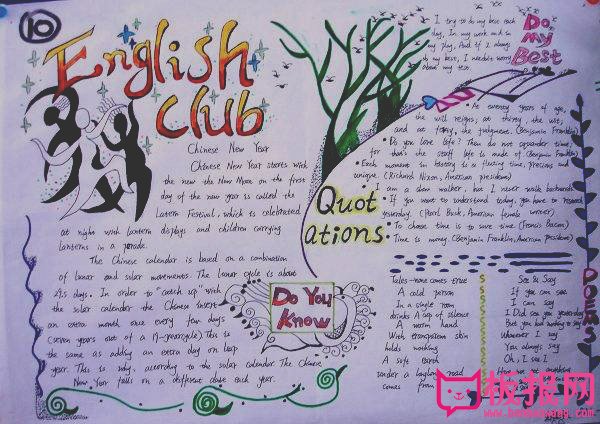 10
English
Club
Chinese New Year
Chinese New Year starts with
the new the New Moon on the first
day of the new year is called the
Latern Festival, which is celebrated
at night with lantern displays and children carrying
lanterns in a parade.
The Chinese calendar is based on a combination
of lunar and solar movements. The lunar cycle is about
29.5 days. In order to "catch up" with
the solar calendar the Chinese insert
an extra month once every few days
(seven years out of a 19-yearcycle) This is
the same as adding an extra day on leap
year. This is why, according to the solar calendar. The Chinese
New Year falls on a different date each year.
Do You
Know
I try to do my best each
day, In my work and in
my play, And if I always
do my best, I needn't worry
about my test.
Do
My
Best
Quot
ations:
At twenty years of age,
the will reigns; at thirty, the wit;
and at forty, the judgment. (Benjamin Franklin)
Do you love life? Then do not squander time;
for that's the stuff life is made of (Benjamin Franklin)
Each moment in history is a fleeting time, precious and
unique. (Richard Nixon, American president)
I am a slow walker, but I never walk backwards.
If you want to understand today, you have to research
yesterday. (Pearl Buck, American female writer)
To choose time is to save time (Francis Bacon)
Time is money (Benjamin Franklin, American president)
Tales-none comes true
A cold person
In a single room
drinks A cup of silence
A warm hand
With transparent skin
holds nothing
A safe earth
under a laughing road
comes from
See & Say
If you can see
I can say
I Did see you yesterday
But you had nothing to say
Whatever I say
You always say
Oh, I see I
板报网